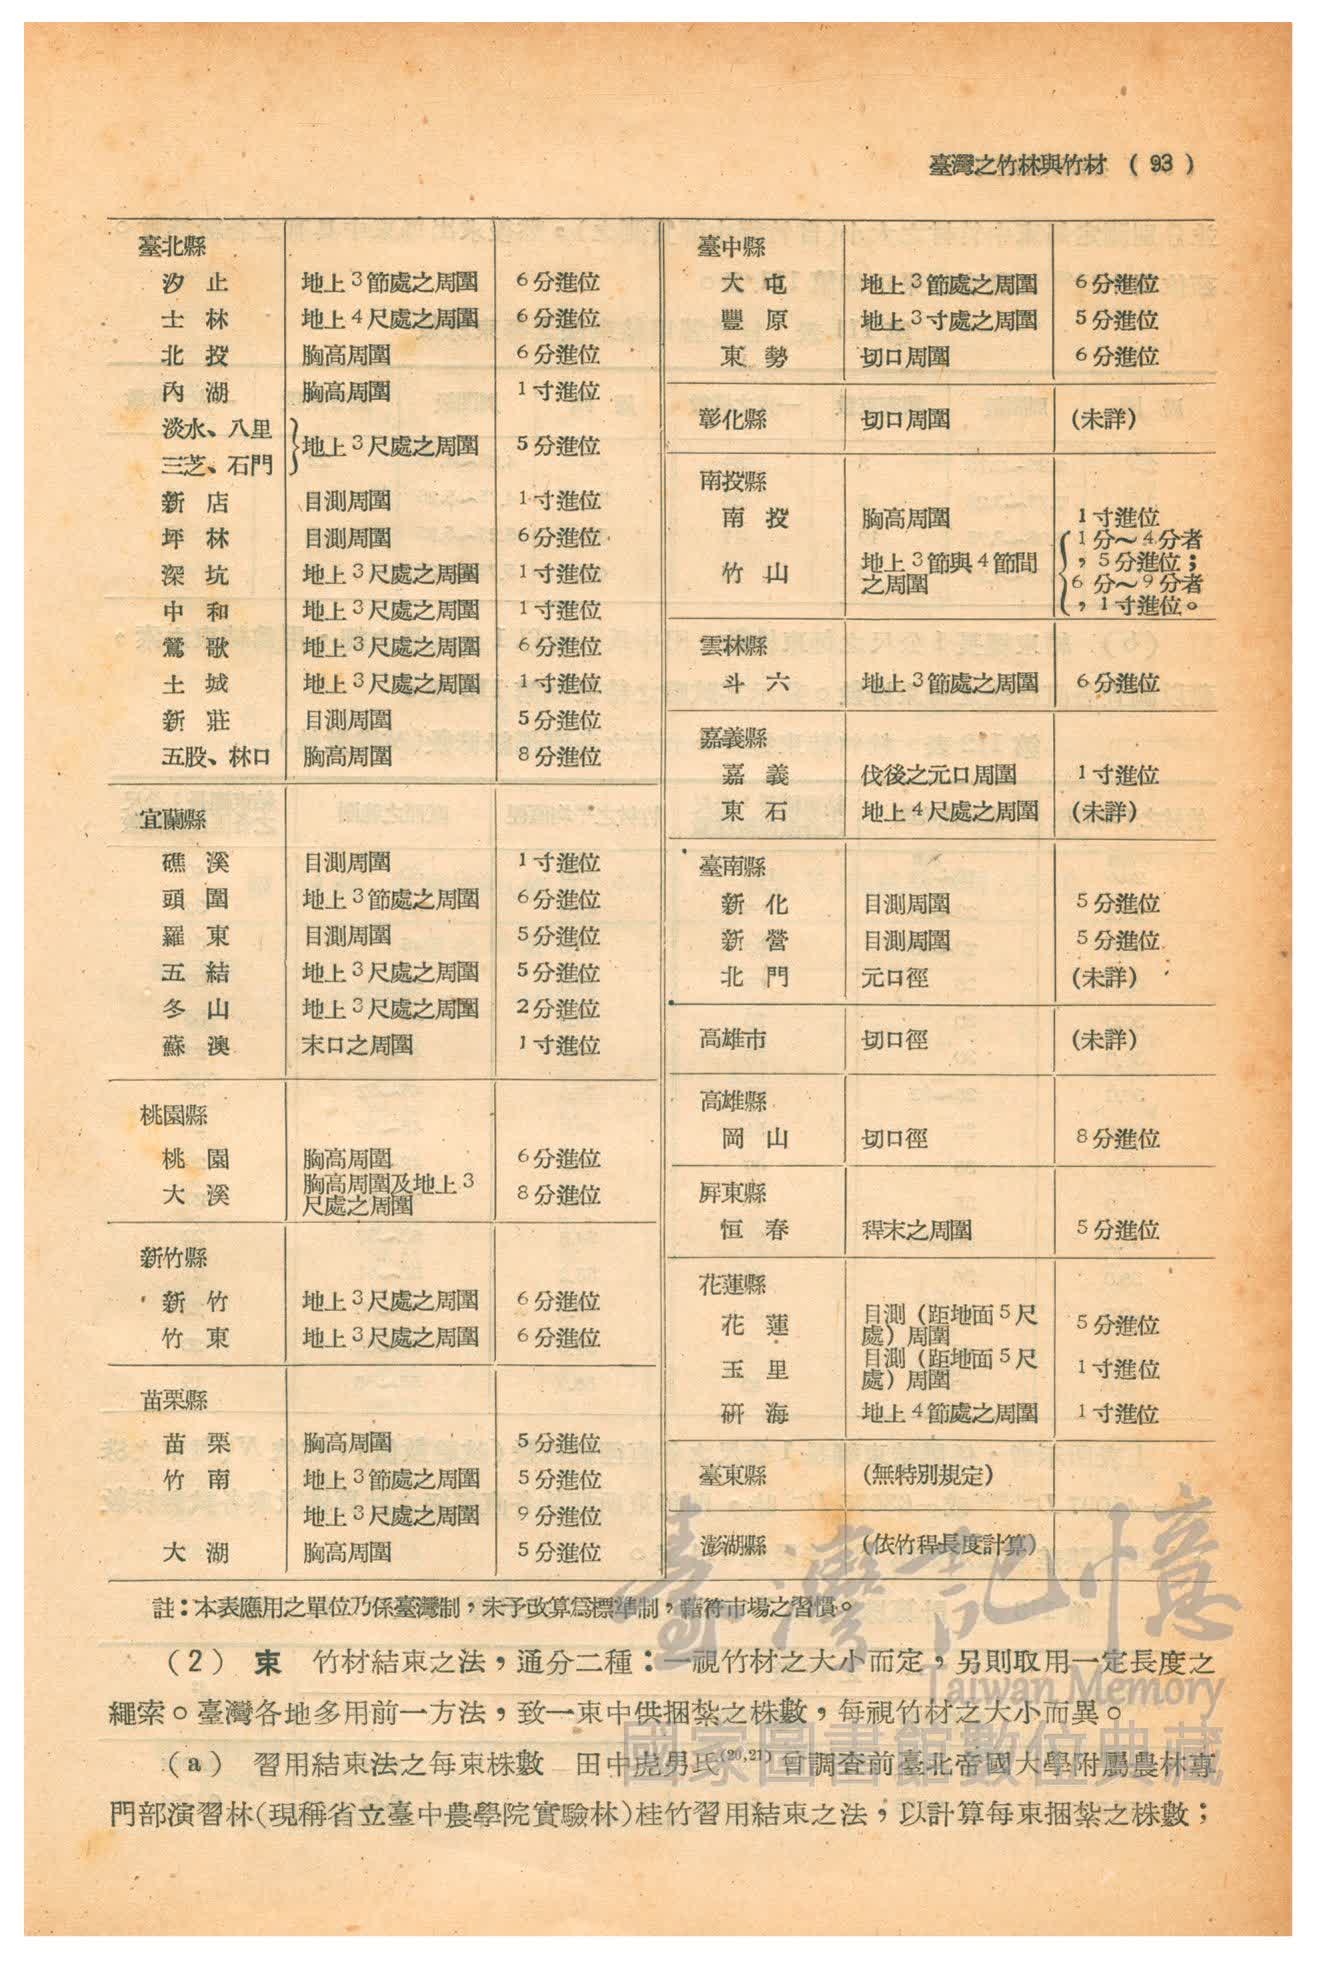 臺灣之竹林與竹材 ( 93 )
臺北縣
汐止 地上3節處之周圍 6分進位
士林 地上4尺處之周圍 6分進位
北投 胸高周圍 6分進位
內湖 胸高周圍 1寸進位
淡水、八里
三芝、石門 } 地上3尺處之周圍 5分進位
新店 目測周圍 1寸進位
坪林 目測周圍 6分進位
深坑 地上3尺處之周圍 1寸進位
中和 地上3尺處之周圍 1寸進位
鶯歌 地上3尺處之周圍 6分進位
土城 地上3尺處之周圍 1寸進位
新莊 目測周圍 5分進位
五股、林口 胸高周圍 8分進位
宜蘭縣
礁溪 目測周圍 1寸進位
頭圍 地上3節處之周圍 6分進位
羅東 目測周圍 5分進位
五結 地上3尺處之周圍 5分進位
冬山 地上3尺處之周圍 2分進位
蘇澳 末口之周圍 1寸進位
桃園縣
桃園 胸高周圍 6分進位
大溪 胸高周圍及地上3
尺處之周圍 8分進位
新竹縣
新竹 地上3尺處之周圍 6分進位
竹東 地上3尺處之周圍 6分進位
苗栗縣
苗栗 胸高周圍 5分進位
竹南 地上3節處之周圍 5分進位
地上3尺處之周圍 9分進位
大湖 胸高周圍 5分進位
臺中縣
大屯 地上3節處之周圍 6分進位
豐原 地上3寸處之周圍 5分進位
東勢 切口周圍 6分進位
彰化縣 切口周圍 (未詳)
南投縣
南投 胸高周圍 1寸進位
竹山 地上3節與4節間
之周圍 { 1分～4分者
，5分進位；
6分～9分者
，1寸進位。
雲林縣
斗六 地上3節處之周圍 6分進位
嘉義縣
嘉義 伐後之元口周圍 1寸進位
東石 地上4尺處之周圍 (未詳)
臺南縣
新化 目測周圍 5分進位
新營 目測周圍 5分進位
北門 元口徑 (未詳)
高雄市 切口徑 (未詳)
高雄縣
岡山 切口徑 8分進位
屏東縣
恒春 稈末之周圍 5分進位
花蓮縣
花蓮 目測（距地面5尺
處）周圍 5分進位
玉里 目測（距地面5尺
處）周圍 1寸進位
研海 地上4節處之周圍 1寸進位
臺東縣 (無特別規定)
澎湖縣 (依竹稈長度計算)
註：本表應用之單位乃係臺灣制，未予改算爲標準制，藉符市場之習慣。
(2) 束 竹材結束之法，通分二種：一視竹材之大小而定，另則取用一定長度之
繩索。臺灣各地多用前一方法，致一束中供捆紮之株數，每視竹材之大小而異。
(a) 習用結束法之每束株數 田中虎男氏(20,21)曾調查前臺北帝國大學附屬農林專
門部演習林(現稱省立臺中農學院實驗林)桂竹習用結束之法，以計算每束捆紮之株數；
臺灣記憶
Taiwan Memory
國家圖書館數位典藏